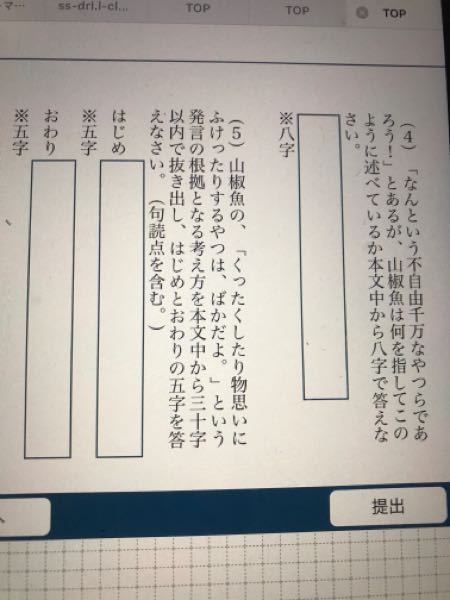 ss-drl.l-cl...
TOP
TOP
TOP
(4)「なんという不自由千万なやつらであ
ろう!」とあるが、山椒魚は何を指してこの
ように述べているか本文中から八字で答えな
さい。
※八字
(5)山椒魚の、「くったくしたり物思いに
ふけったりするやつは、ばかだよ。」という
発言の根拠となる考え方を本文中から三十字
以内で抜き出し、はじめとおわりの五字を答
えなさい。(句読点を含む。)
はじめ
※五字
おわり
※五字
提出